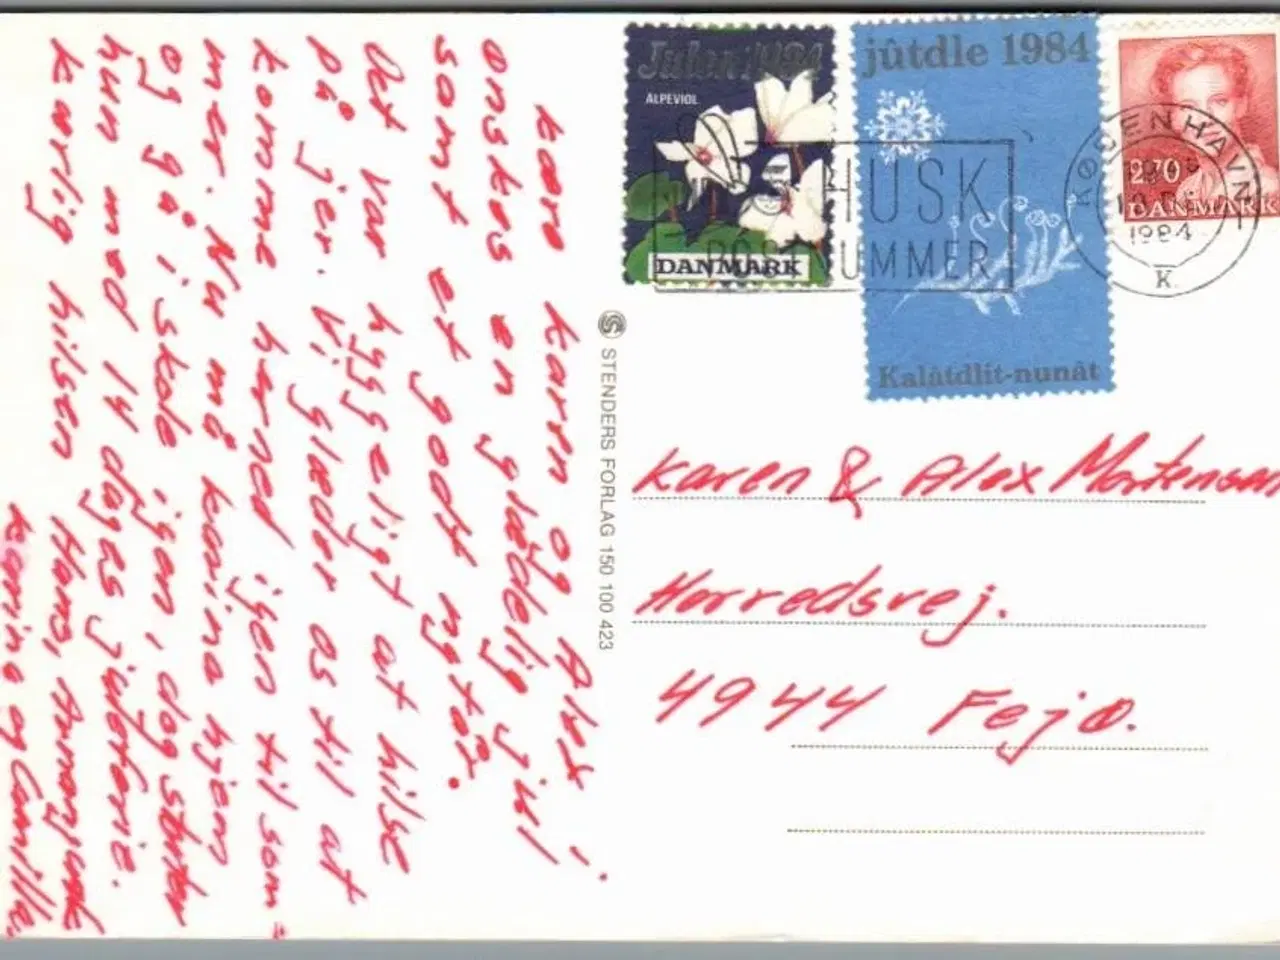 kære karen og Alex!
ønskes en glædelig jul
samt et godt nytår.
Det var hyggeligt at hilse
på jer. Vi glæder os til at
komme herned igen til som-
mer. Nu må karina hjem
og gå i skole igen, dog starter
hun med 14 dages juleferie.
kærlig hilsen Hans,
karina og Camilla
STENDERS FORLAG 150 100 423
Julen 1984
ALPEVIOL
DANMARK
jûtdle 1984
Kalâtdlit-nunât
270
DANMARK
HUSK
POSTNUMMER
KØBENHAVN
1984
K
karen & Alex Mortensen
Horredsvej.
4944 Fejø.